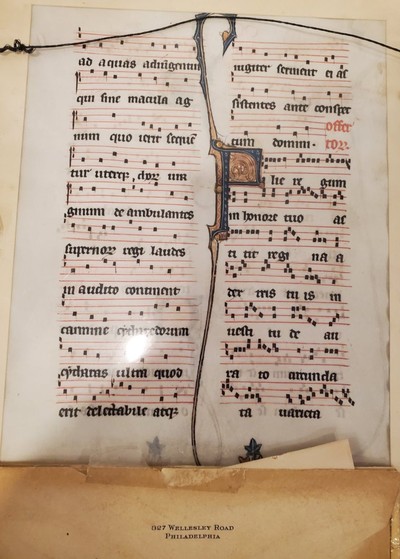 ad aquas adingentur
qui sine macula ag
num quo ierit sequē
tur uterqꝫ chor uir
ginum de ambulantes
supernoꝝ regi laudes
in audito continent
carmine cytharedorum
cytharas ultra quod
erit delectabile atqꝫ
iugiter seruient ei as
sistentes ante conspec
offer
tum domini.
toꝝ.
Filie regum
in honore tuo as
ti tit regi na a
der tris tu is in
uesti tu de au
ra to circunda
ta uarieta
327 WELLESLEY ROAD
PHILADELPHIA